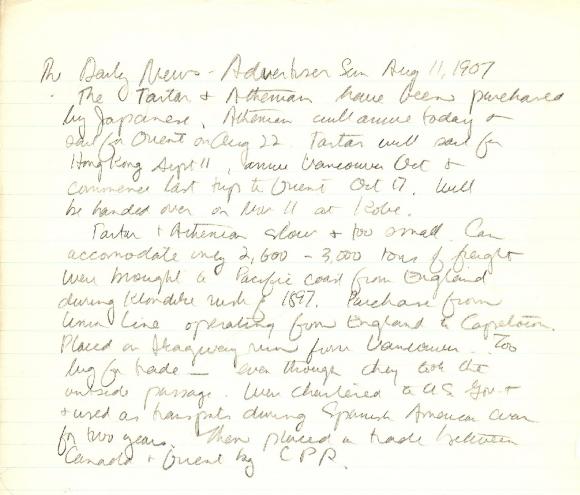 The Daily News-Advertiser Sun Aug 11, 1907
The Tartar & Athenian have been purchased
by Japanese. Athenian will arrive today &
sail for Orient on Aug 22. Tartar will sail for
Hong Kong Sept 11, arrive Vancouver Oct &
commence last trip to Orient Oct 17. Will
be handed over on Nov 11 at Kobe.
Tartar & Athenian slow & too small. Can
accomodate only 2,600 - 3,000 tons of freight
Were brought to Pacific coast from England
during Klondike rush of 1897. Purchase from
Union Line operating from England to Capetown.
Placed on Skagway run from Vancouver. Too
big for trade - even though they took the
outside passage. Were chartered to U.S. Gov't
& used as transports during Spanish American war
for two years. Then placed in trade between
Canada & Orient by CPR.